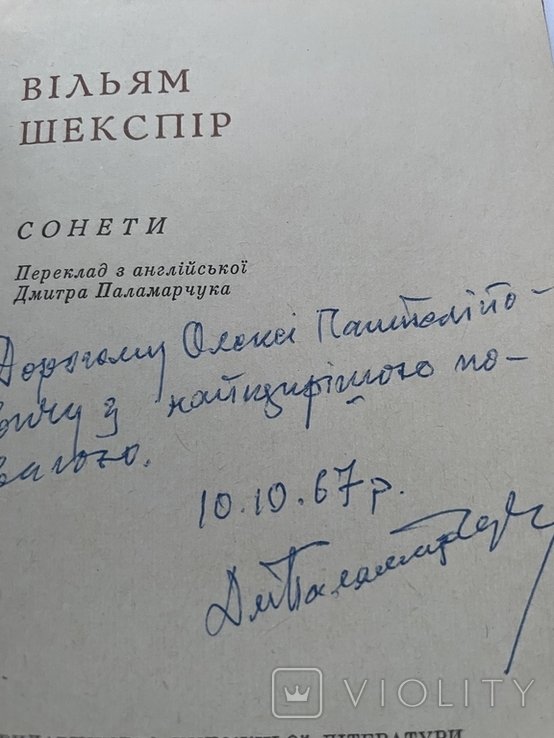 ВІЛЬЯМ
ШЕКСПІР
СОНЕТИ
Переклад з англійської
Дмитра Паламарчука
Дорогому Олексі
вичу з найщирішою по-
вагою.
10.10.67 р.
VIOLITY
ЛІТЕРАТУРИ